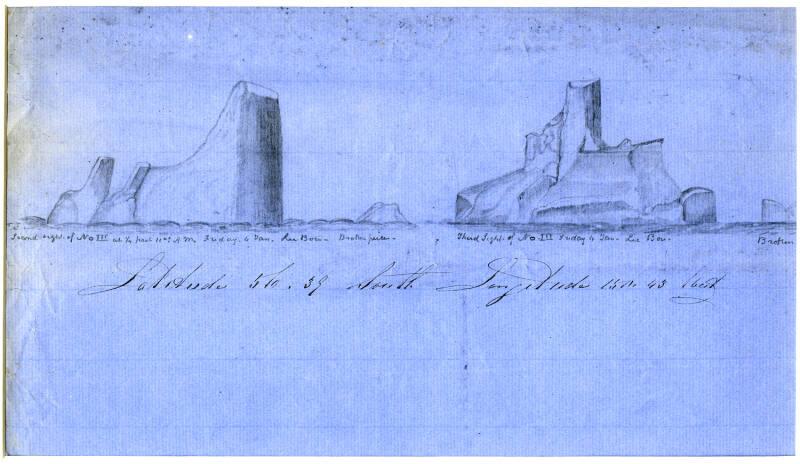 Second sight of No III at ½ past 11 A.M Friday. 4 Jan. Lee Bow. Broken piece.
Third Sight. of No III Friday 4 Jan. Lee Bow.
Broken
Latitude 56.39 South Longitude 43 West